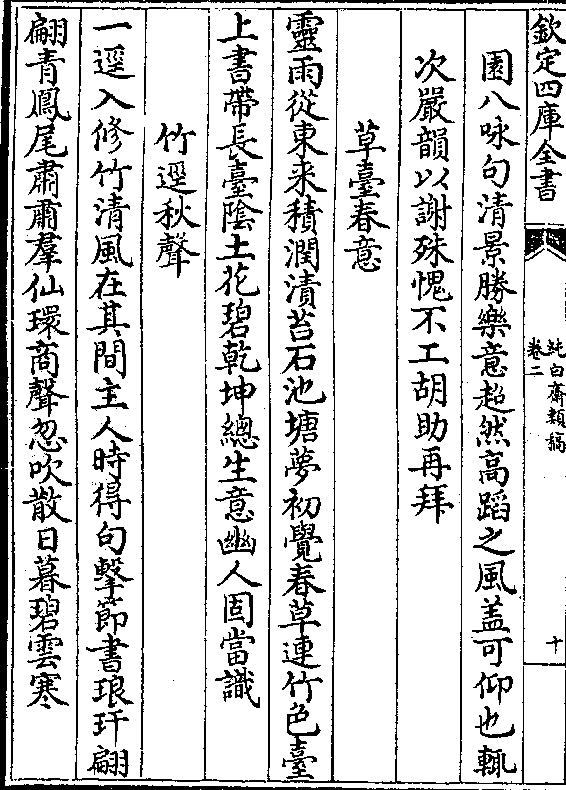 欽定四庫全書
純白齋類稿
卷二
十
園八咏句清景勝樂意超然高蹈之風蓋可仰也輒
次嚴韻以謝殊愧不工胡助再拜
草臺春意
靈雨從東来積潤漬苔石池塘夢初覺春草連竹色臺
上書帶長臺陰土花碧乾坤總生意幽人固當識
竹逕秋聲
一逕入修竹清風在其間主人時得句擊節書琅玕翩
翩青鳳尾肅肅羣仙環商聲忽吹散日暮碧雲寒